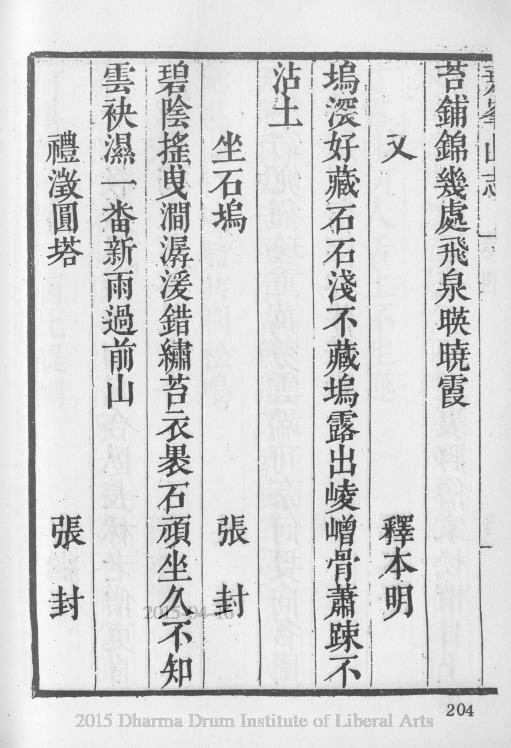 峯山志
苔鋪錦幾處飛泉暎曉霞
又　釋本明
塢深好藏石石淺不藏塢露出崚嶒骨蕭踈不
沾土
坐石塢　張封
碧陰搖曳澗潺湲錯繡苔衣褁石頑坐久不知
雲袂濕一畨新雨過前山
禮澂圓塔　張封
204
2015 Dharma Drum Institute of Liberal Arts